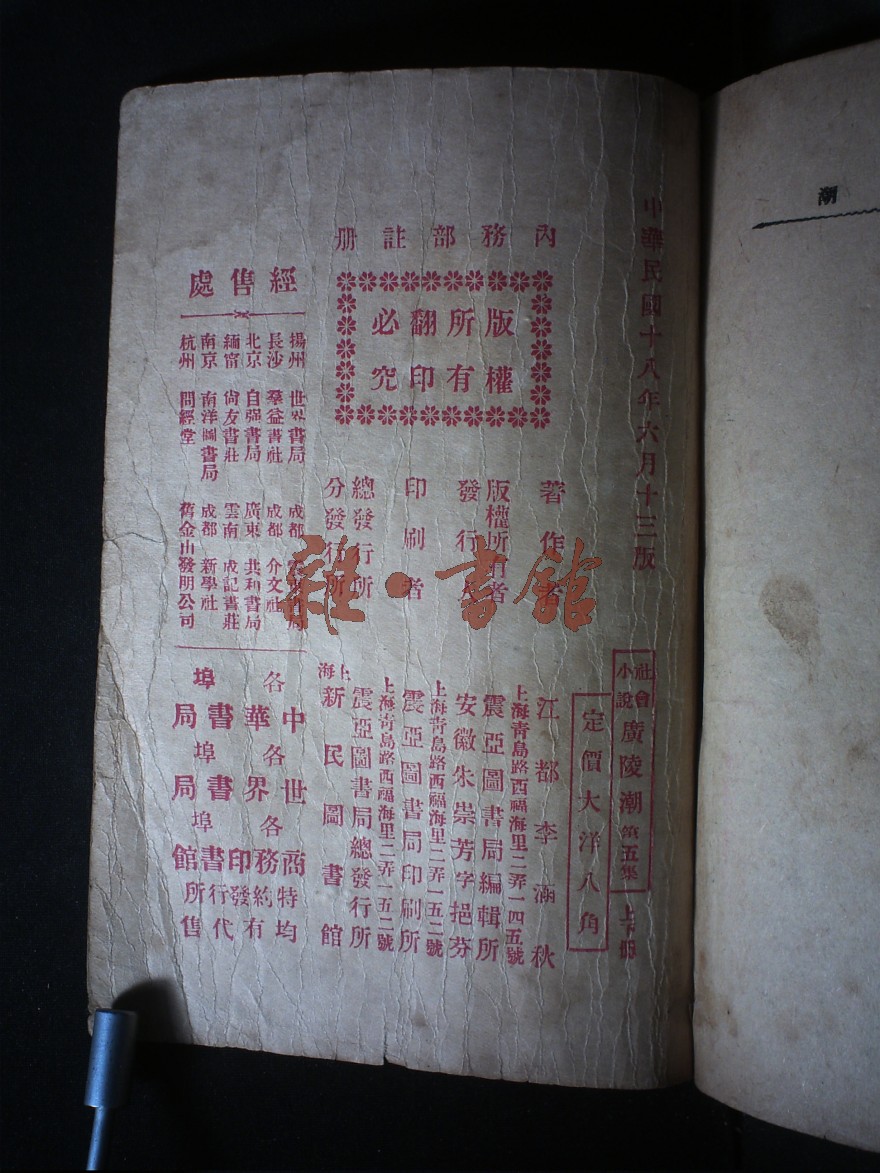 潮
中華民國十八年六月十三版
社會小說 廣陵潮 第五集 上下冊
定價大洋八角
內務部註册
版權所有
翻印必究
著作者 江都李涵秋
版權所有者 上海青島路西福海里二弄一四五號 震亞圖書局編輯所
發行人 安徽朱崇芳字挹芬
印刷者 上海青島路西福海里二弄一五二號 震亞圖書局印刷所
總發行所 上海青島路西福海里二弄一五二號 震亞圖書局總發行所
分發行所 上海新民圖書館
經售處
揚州 世界書局
長沙 羣益書社
北京 自强書局
緬甯 尙友書莊
南京 南洋圖書局
杭州 問經堂
成都 書局
成都 介文社
廣東 共和書局
雲南 成記書莊
成都 新學社
舊金山發明公司
中華書局各埠
世界書局各埠
商務印書館各埠
特約發行所
均有代售
雜·書館